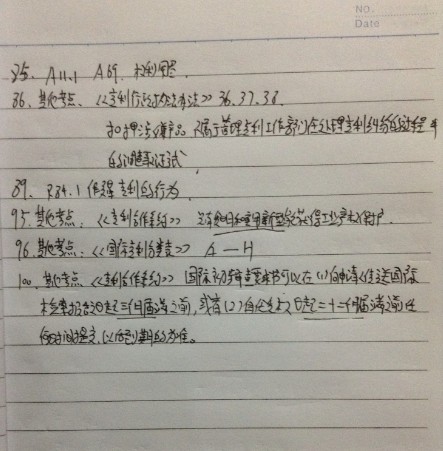 NO.
Date
85. A11.1 A69. 权利用尽.
86. 其他考点、《专利行政执法办法》36.37.38.
扣押涉嫌产品 只属于管理专利工作部门在处理专利纠纷的过程中
的调查取证
89. R84.1 假冒专利的行为
95. 其他考点:《专利合作条约》
96. 其他考点:《国际专利分类表》 A—H
100. 其他考点 《专利合作条约》 国际初步审查要求书可以在(1)向申请人传送国际
检索报告之日起三个月届满之前, 或者(2)自优先权日起二十二个月届满之前任
何时间提交, 以后到期的为准。